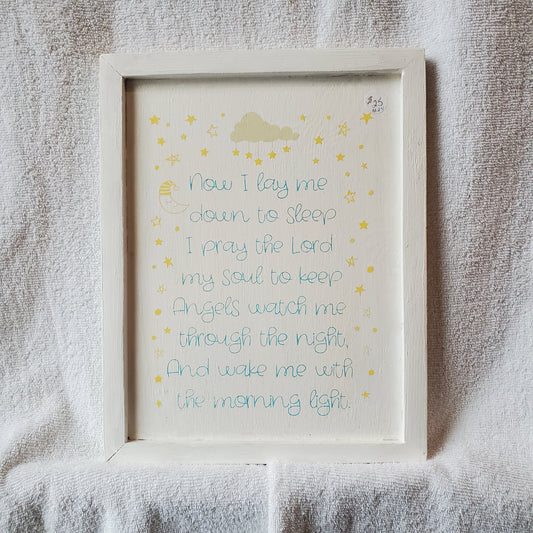 $25
Now I lay me
down to sleep
I pray the Lord
my soul to keep
Angels watch me
through the night,
And wake me with
the morning light.